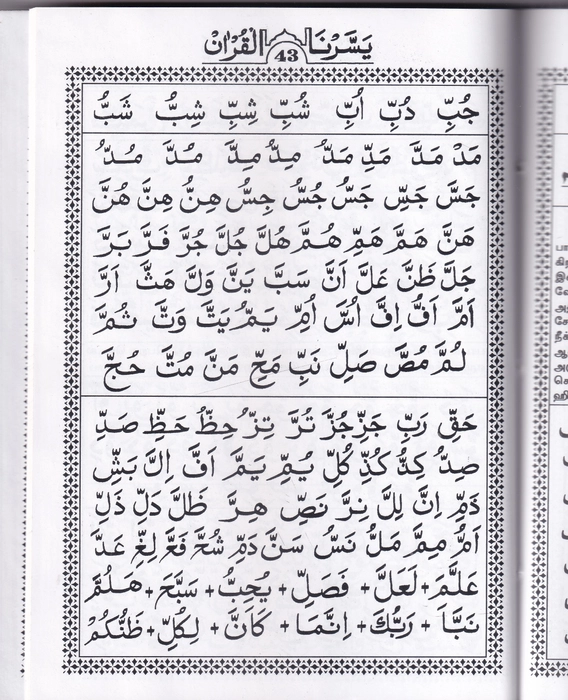 يَسَّرْنَا الْقُرْاٰن
43
جُبِّ دُبِّ اُبِّ شُبِّ شِبِّ شِبُّ شَبُّ
مَدْ مَدَّ مَدِّ مَدُّ مِدُّ مِدَّ مُدَّ مُدُّ
جَسَّ جَسِّ جَسُّ جُسُّ جِسُّ هِنُّ هِنَّ هُنَّ
هَنَّ هَمَّ هَمِّ هُمَّ هُلَّ جُلَّ جُرَّ فَرَّ بَرَّ
جَلَّ ظَنَّ عَلَّ اَنَّ سَبَّ يَنَّ وَلَّ هَثَّ اَرَّ
اَمَّ اَفُّ اِقَّ اُسَّ اُمِّ يَمُّ يَتَّ وَتَّ ثُمَّ
لُمَّ مُصَّ صَلِّ نَبِّ مَحِّ مَنَّ مُتَّ حُجَّ
حَقِّ رَبِّ جَزِّ جُزَّ تُرَّ تِزُّ حِظُّ حَظِّ صَدِّ
صِدُّ كِةُّ كُذِّ كُلِّ يُمِّ يَمَّ اَقَّ اِلَّ بَشِّ
ذَمِّ اِنَّ لِلَّ نِرَّ نَصِّ هِرَّ ظَلَّ دَلِّ ذَلِّ
اَمُّ مِمَّ مَلُّ نَسُّ سَنَّ دَمِّ شُحَّ فَعَّ لِغِّ عَدَّ
عَلَّمَ + لَعَلَّ + فَصَلِّ + يُحِبُّ + سَبَّحَ + هَلُمَّ
نَبَّاَ + رَبُّكَ + اِنَّمَا + كَانَّ + لِكُلِّ + ظَنُّكُمْ